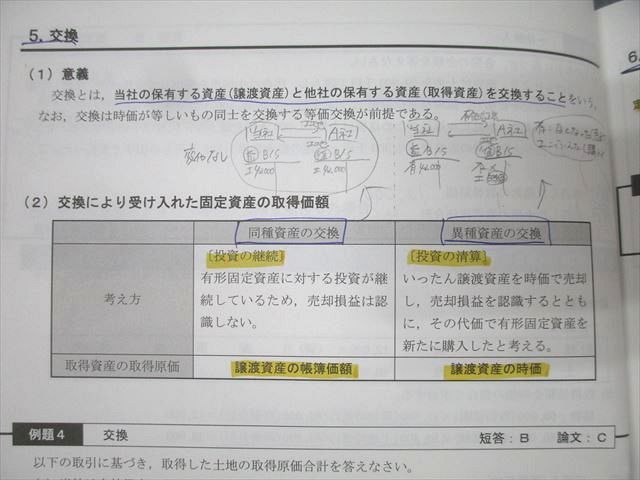 5. 交換
6.
(1) 意義
交換とは，当社の保有する資産（譲渡資産）と他社の保有する資産（取得資産）を交換することをいう。
なお，交換は時価が等しいもの同士を交換する等価交換が前提である。
当社 A社 当社 A社
B/S B/S B/S B/S
(2) 交換により受け入れた固定資産の取得価額
同種資産の交換 異種資産の交換
考え方
[投資の継続]
有形固定資産に対する投資が継
続しているため，売却損益は認
識しない。
[投資の清算]
いったん譲渡資産を時価で売却
し，売却損益を認識するととも
に，その代価で有形固定資産を
新たに購入したと考える。
取得資産の取得原価 譲渡資産の帳簿価額 譲渡資産の時価
例題4 交換 短答：B 論文：C
以下の取引に基づき，取得した土地の取得原価合計を答えなさい。